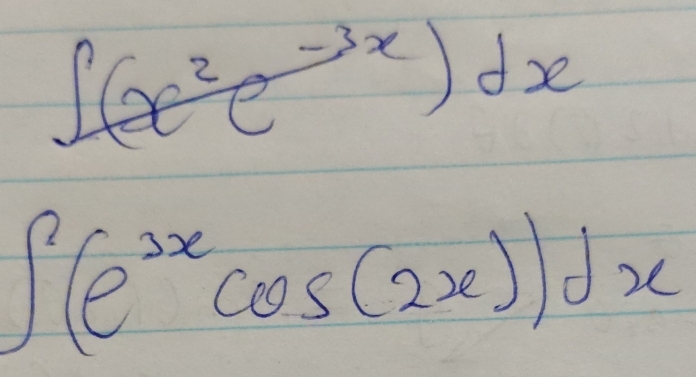 ∫(x²e⁻³ˣ)dx
∫(e³ˣcos(2x))dx